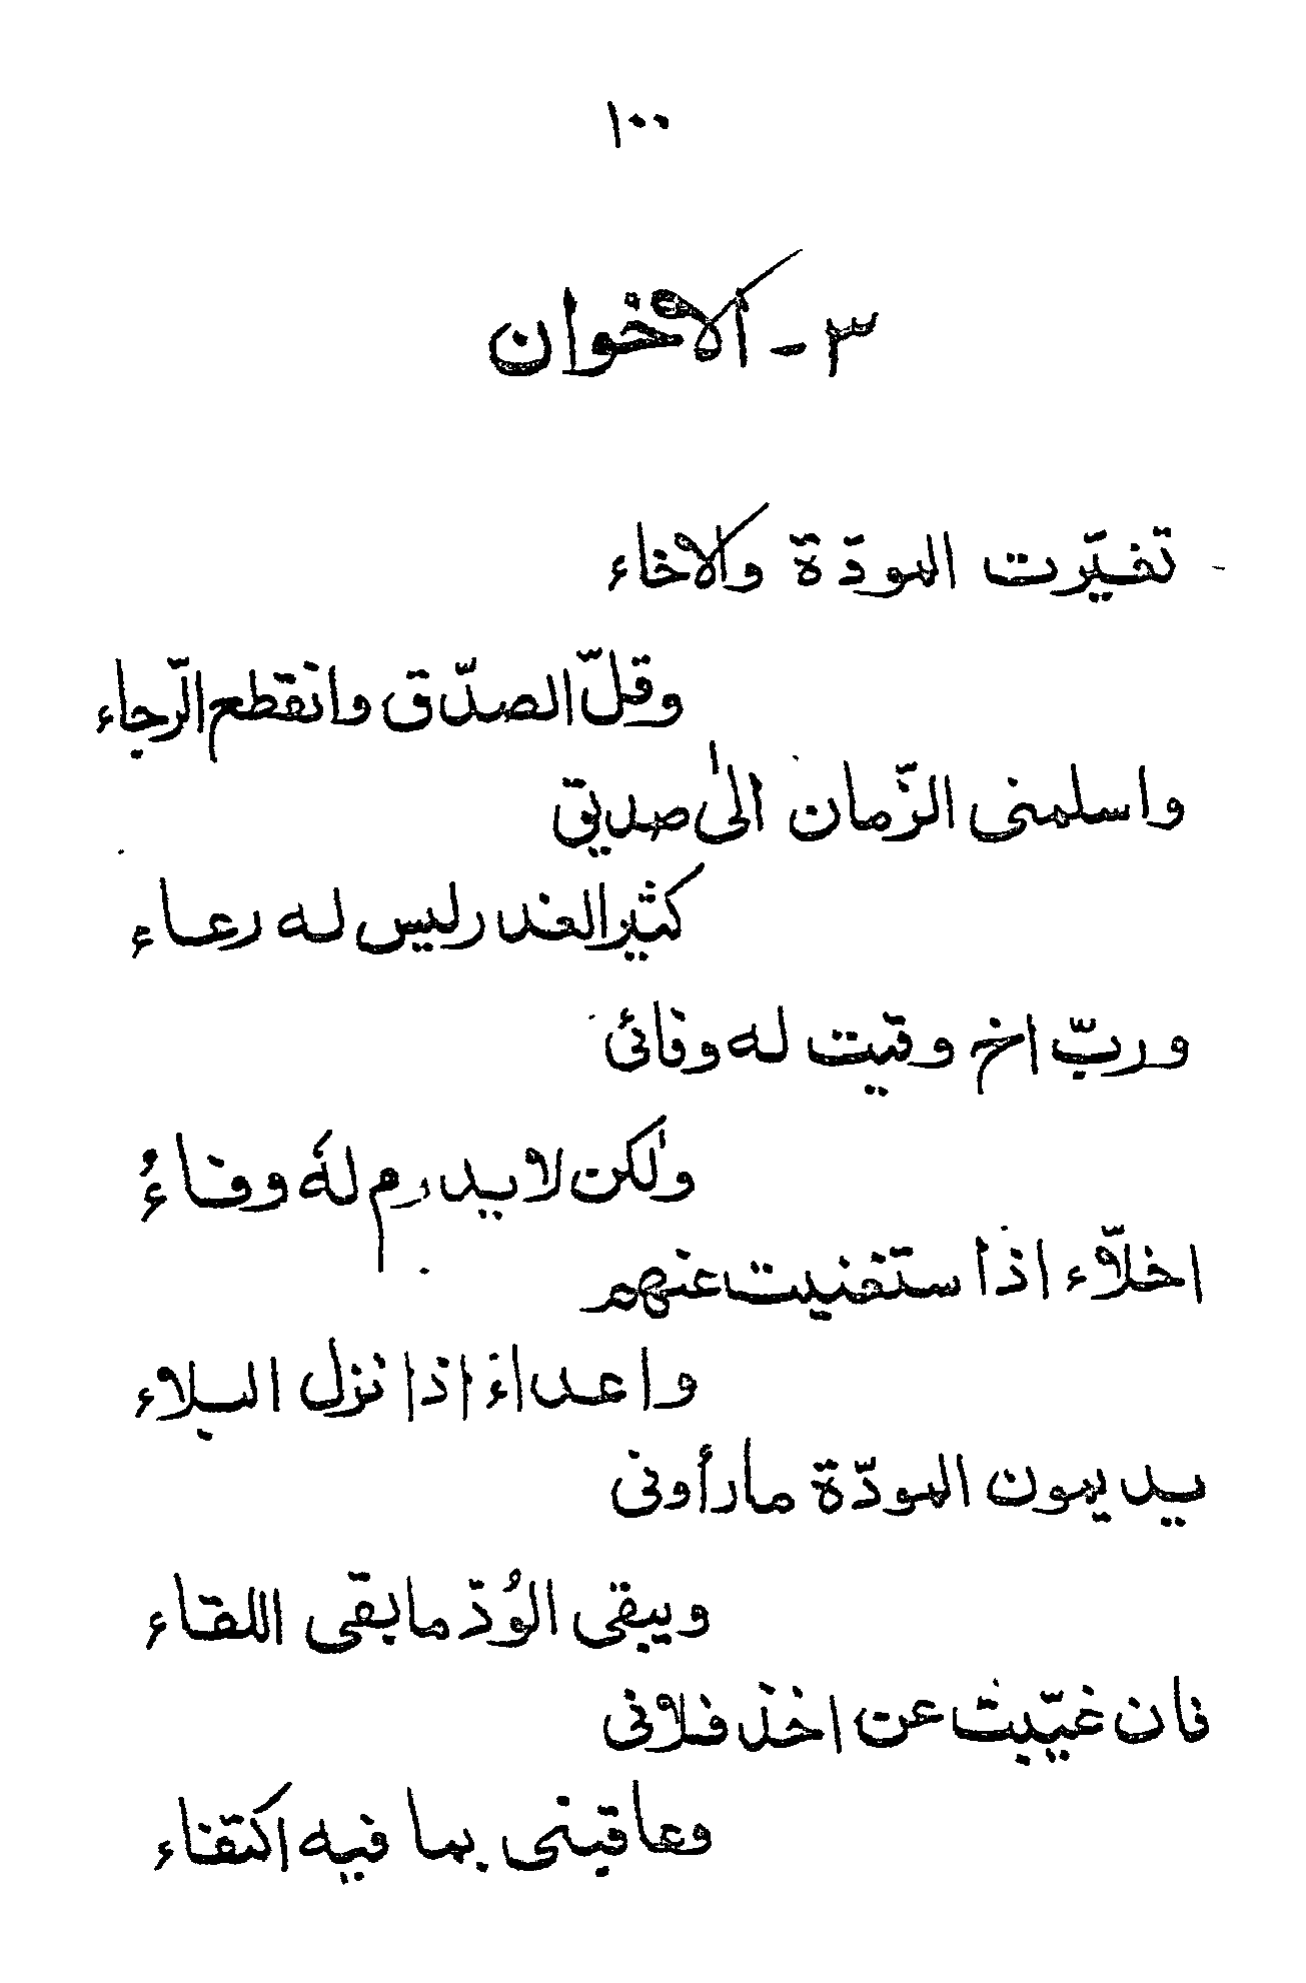 ١٠٠
٣ - ألاخوان
تغيّرت المودّة والاخاء
وقلّ الصدّق وانقطع الرّجاء
واسلمنى الزّمان الىٰ صديق
كثير الغدر ليس له رعاء
وربّ اخ وقيت له وفائى
ولٰكن لا يدرم لهٗ وفاءُ
اخلّاء اذا ستغنيت عنهم
واعداء اذا نزل البلاء
يديمون المودّة مارأونى
ويبقى الوُدّ مابقى اللقاء
فان غيّبت عن اخذ فلانى
وعاقبنى بما فيه اكتفاء